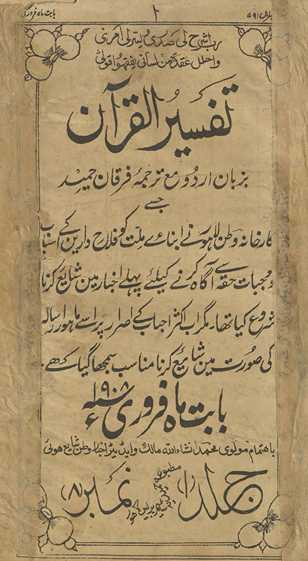 بابت ماہ فروری
۲
رب اشرح لی صدری ویسرلی امری
واحلل عقدۃ من لسانی یفقہوا قولی
تفسیر القرآن
بزبان اردو مع ترجمۂ فرقان حمید
جسے
کارخانہ وطن لاہور نے ابنائے ملت کو فلاح دارین کے اسباب
وموجبات حقہ سے آگاہ کرنے کیلئے پہلے اخبار مین شایع کرنا
شروع کیا تھا۔ مگر اب اکثر احباب کے اصرار پر اسے ماہوار رسالہ
کی صورت مین شایع کرنا مناسب سمجھا گیا کہے۔
بابت ماہ فروری ۱۹۰۸ء
باہتمام مولوی محمد انشاءاللہ مالک واڈیٹر اخبار وطن شایع ہوئی
جلد (۱) نمبر (۸)